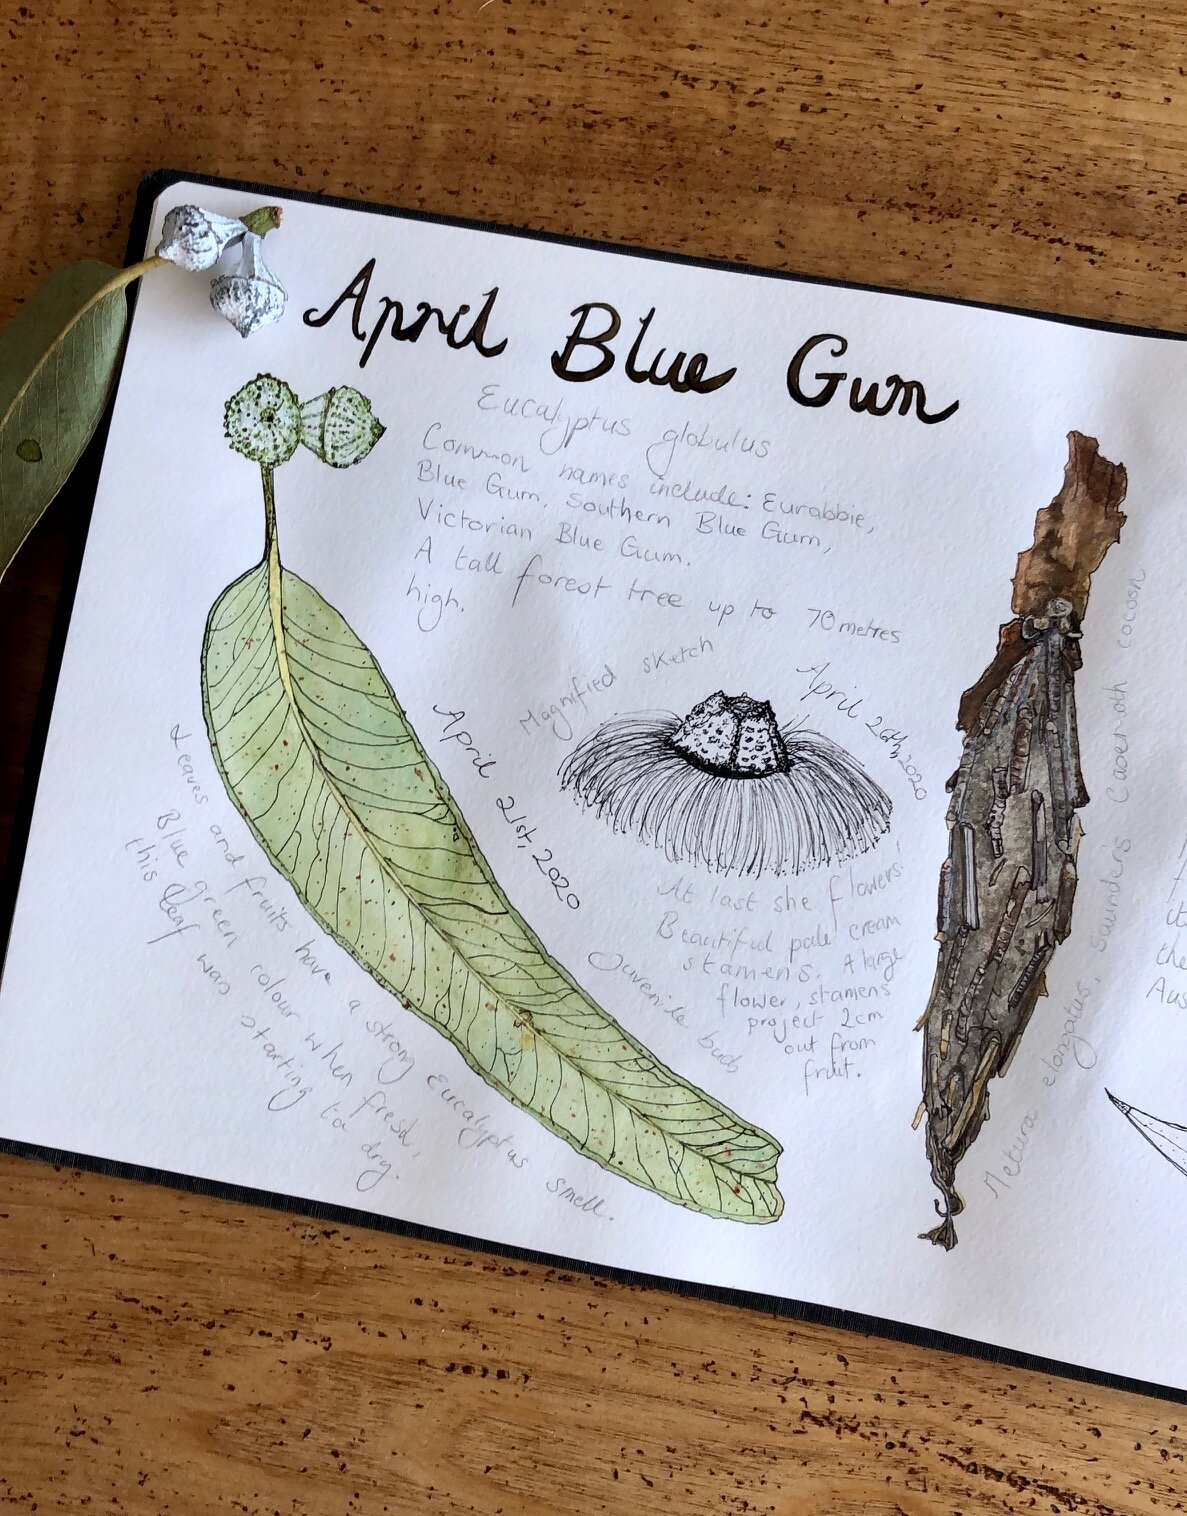 April Blue Gum
Eucalyptus globulus
Common names include: Eurabbie,
Blue Gum, Southern Blue Gum,
Victorian Blue Gum.
A tall forest tree up to 70metres
high.
Magnified sketch
April 26th, 2020
April 21st, 2020
At last she flowers!
Beautiful pale cream
stamens. A large
flower, stamens
project 2cm
out from
fruit.
Juvenile buds
Leaves and fruits have a strong eucalyptus smell.
Blue green colour when fresh,
this leaf was starting to dry.
Metura elongatus, Saunder's Casemoth cocoon
it
the
Aus